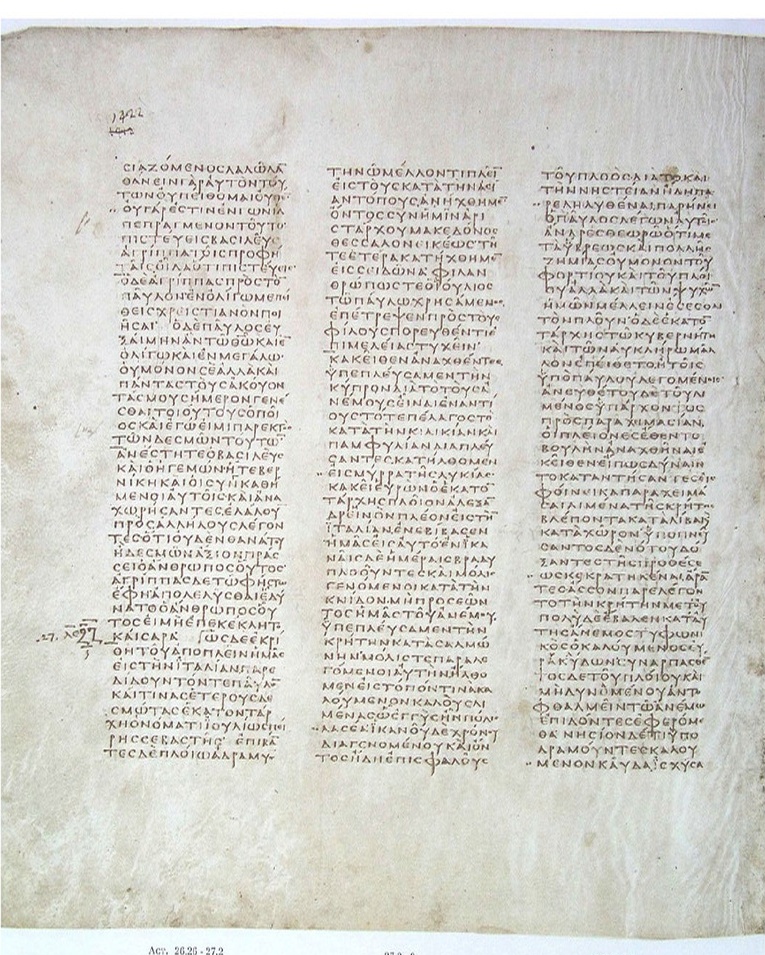 1222
ϹΙΑΖΟΜΕΝΟϹΛΑΛΩΛΑ
ΘΑΝΕΙΝΓΑΡΑΥΤΟΝΤΟΥ
ΤΩΝΟΥΠΕΙΘΟΜΑΙΟΥΘΕ
ΟΥΓΑΡΕϹΤΙΝΕΝΓΩΝΙΑ
ΠΕΠΡΑΓΜΕΝΟΝΤΟΥΤΟ
ΠΙϹΤΕΥΕΙϹΒΑϹΙΛΕΥ
ΑΓΡΙΠΠΑΤΟΙϹΠΡΟΦΗ
ΤΑΙϹΟΙΔΑΟΤΙΠΙϹΤΕΥΕΙϹ
ΟΔΕΑΓΡΙΠΠΑϹΠΡΟϹΤΟ
ΠΑΥΛΟΝΕΝΟΛΙΓΩΜΕΠΕΙ
ΘΕΙϹΧΡΕΙϹΤΙΑΝΟΝΠΟΙ
ΗϹΑΙ ΟΔΕΠΑΥΛΟϹΕΥ
ΞΑΙΜΗΝΑΝΤΩΘΩΚΑΙΕ
ΟΛΙΓΩΚΑΙΕΝΜΕΓΑΛΩ
ΟΥΜΟΝΟΝϹΕΑΛΛΑΚΑΙ
ΠΑΝΤΑϹΤΟΥϹΑΚΟΥΟΝ
ΤΑϹΜΟΥϹΗΜΕΡΟΝΓΕΝΕ
ϹΘΑΙΤΟΙΟΥΤΟΥϹΟΠΟΙ
ΟϹΚΑΙΕΓΩΕΙΜΙΠΑΡΕΚΤ
ΤΩΝΔΕϹΜΩΝΤΟΥΤΩ
ΑΝΕϹΤΗΤΕΟΒΑϹΙΛΕΥϹ
ΚΑΙΟΗΓΕΜΩΝΗΤΕΒΕΡ
ΝΙΚΗΚΑΙΟΙϹΥΝΚΑΘΗ
ΜΕΝΟΙΑΥΤΟΙϹΚΑΙΑΝΑ
ΧΩΡΗϹΑΝΤΕϹΕΛΑΛΟΥ
ΠΡΟϹΑΛΛΗΛΟΥϹΛΕΓΟΝ
ΤΕϹΟΤΙΟΥΔΕΝΘΑΝΑΤΟΥ
ΗΔΕϹΜΩΝΑΞΙΟΝΠΡΑϹ
ϹΕΙΟΑΝΘΡΩΠΟϹΟΥΤΟϹ
ΑΓΡΙΠΠΑϹΔΕΤΩΦΗϹΤΩ
ΕΦΗΑΠΟΛΕΛΥϹΘΑΙΕΔΥ
ΝΑΤΟΟΑΝΘΡΩΠΟϹΟΥ
ΤΟϹΕΙΜΗΕΠΕΚΕΚΛΗΤ
ΚΑΙϹΑΡΑ ΩϹΔΕΕΚΡΙ
ΘΗΤΟΥΑΠΟΠΛΕΙΝΗΜΑϹ
ΕΙϹΤΗΝΙΤΑΛΙΑΝΠΑΡΕ
ΔΙΔΟΥΝΤΟΝΤΕΠΑΥΛΟ
ΚΑΙΤΙΝΑϹΕΤΕΡΟΥϹΔΕ
ϹΜΩΤΑϹΕΚΑΤΟΝΤΑΡ
ΧΗΟΝΟΜΑΤΙΙΟΥΛΙΩϹΠΕΙ
ΡΗϹϹΕΒΑϹΤΗϹ ΕΠΙΒΑ
ΤΕϹΔΕΠΛΟΙΩΑΔΡΑΜΥ
ΤΗΝΩΜΕΛΛΟΝΤΙΠΛΕΙ
ΕΙϹΤΟΥϹΚΑΤΑΤΗΝΑϹΙ
ΑΝΤΟΠΟΥϹΑΝΗΧΘΗΜΕ
ΟΝΤΟϹϹΥΝΗΜΙΝΑΡΙ
ϹΤΑΡΧΟΥΜΑΚΕΔΟΝΟϹ
ΘΕϹϹΑΛΟΝΕΙΚΕΩϹΤΗ
ΤΕΕΤΕΡΑΚΑΤΗΧΘΗΜΕ
ΕΙϹϹΕΙΔΩΝΑΦΙΛΑΝ
ΘΡΩΠΩϹΤΕΟΙΟΥΛΙΟϹ
ΤΩΠΑΥΛΩΧΡΗϹΑΜΕΝΟϹ
ΕΠΕΤΡΕΨΕΝΠΡΟϹΤΟΥϹ
ΦΙΛΟΥϹΠΟΡΕΥΘΕΝΤΙΕ
ΠΙΜΕΛΕΙΑϹΤΥΧΕΙΝ
ΚΑΚΕΙΘΕΝΑΝΑΧΘΕΝΤΕϹ
ΥΠΕΠΛΕΥϹΑΜΕΝΤΗΝ
ΚΥΠΡΟΝΔΙΑΤΟΤΟΥϹΑ
ΝΕΜΟΥϹΕΙΝΑΙΕΝΑΝΤΙ
ΟΥϹΤΟΤΕΠΕΛΑΓΟϹΤΟ
ΚΑΤΑΤΗΝΚΙΛΙΚΙΑΝΚΑΙ
ΠΑΜΦΥΛΙΑΝΔΙΑΠΛΕΥ
ϹΑΝΤΕϹΚΑΤΗΛΘΟΜΕΝ
ΕΙϹΜΥΡΡΑΤΗϹΛΥΚΙΑϹ
ΚΑΚΕΙΕΥΡΩΝΟΕΚΑΤΟ
ΤΑΡΧΗϹΠΛΟΙΟΝΑΛΕΞΑ
ΔΡΕΙΝΟΝΠΛΕΟΝΕΙϹΤΗ
ΙΤΑΛΙΑΝΕΝΕΒΙΒΑϹΕΝ
ΗΜΑϹΕΙϹΑΥΤΟΕΝΙΚΑ
ΝΑΙϹΔΕΗΜΕΡΑΙϹΒΡΑΔΥ
ΠΛΟΟΥΝΤΕϹΚΑΙΜΟΛΙϹ
ΓΕΝΟΜΕΝΟΙΚΑΤΑΤΗΝ
ΚΝΙΔΟΝΜΗΠΡΟϹΕΩΝ
ΤΟϹΗΜΑϹΤΟΥΑΝΕΜΟΥ
ΥΠΕΠΛΕΥϹΑΜΕΝΤΗΝ
ΚΡΗΤΗΝΚΑΤΑϹΑΛΜΩ
ΝΗΝΜΟΛΙϹΤΕΠΑΡΑΛΕ
ΓΟΜΕΝΟΙΑΥΤΗΝΗΛΘΟ
ΜΕΝΕΙϹΤΟΠΟΝΤΙΝΑΚΑ
ΛΟΥΜΕΝΟΝΚΑΛΟΥϹΛΙ
ΜΕΝΑϹΩΕΓΓΥϹΗΝΠΟΛΙϹ
ΛΑϹϹΑΪΚΑΝΟΥΔΕΧΡΟΝΟΥ
ΔΙΑΓΕΝΟΜΕΝΟΥΚΑΙΟΝ
ΤΟϹΗΔΗΕΠΙϹΦΑΛΟΥϹ
ΤΟΥΠΛΟΟϹΔΙΑΤΟΚΑΙ
ΤΗΝΝΗϹΤΕΙΑΝΗΔΗΠΑ
ΡΕΛΗΛΥΘΕΝΑΙΠΑΡΗΝΕΙ
ΟΠΑΥΛΟϹΛΕΓΩΝΑΥΤΟΙϹ
ΑΝΔΡΕϹΘΕΩΡΩΟΤΙΜΕ
ΤΑΥΒΡΕΩϹΚΑΙΠΟΛΛΗϹ
ΖΗΜΙΑϹΟΥΜΟΝΟΝΤΟΥ
ΦΟΡΤΙΟΥΚΑΙΤΟΥΠΛΟΙ
ΟΥΑΛΛΑΚΑΙΤΩΝΨΥΧΩ
ΗΜΩΝΜΕΛΛΕΙΝΕϹΕϹΘΑΙ
ΤΟΝΠΛΟΥΝΟΔΕΕΚΑΤΟ
ΤΑΡΧΗϹΤΩΚΥΒΕΡΝΗΤΗ
ΚΑΙΤΩΝΑΥΚΛΗΡΩΜΑΛ
ΛΟΝΕΠΕΙΘΕΤΟΗΤΟΙϹ
ΥΠΟΠΑΥΛΟΥΛΕΓΟΜΕΝΟΙϹ
ΑΝΕΥΘΕΤΟΥΔΕΤΟΥΛΙ
ΜΕΝΟϹΥΠΑΡΧΟΝΤΟϹ
ΠΡΟϹΠΑΡΑΧΙΜΑϹΙΑΝ
ΟΙΠΛΕΙΟΝΕϹΕΘΕΝΤΟ
ΒΟΥΛΗΝΑΝΑΧΘΗΝΑΙΕ
ΚΕΙΘΕΝΕΙΠΩϹΔΥΝΑΙΝ
ΤΟΚΑΤΑΝΤΗϹΑΝΤΕϹΕΙϹ
ΦΟΙΝΕΙΚΑΠΑΡΑΧΕΙΜΑ
ϹΑΙΛΙΜΕΝΑΤΗϹΚΡΗΤΗϹ
ΒΛΕΠΟΝΤΑΚΑΤΑΛΙΒΑΚΑΙ
ΚΑΤΑΧΩΡΟΝΥΠΟΠΝΕΥ
ϹΑΝΤΟϹΔΕΝΟΤΟΥΔΟ
ΞΑΝΤΕϹΤΗϹΠΡΟΘΕϹΕ
ΩϹΚΕΚΡΑΤΗΚΕΝΑΙΑΡΑ
ΤΕϹΑϹϹΟΝΠΑΡΕΛΕΓΟΝ
ΤΟΤΗΝΚΡΗΤΗΝΜΕΤΟΥ
ΠΟΛΥΔΕΕΒΑΛΕΝΚΑΤΑΥ
ΤΗϹΑΝΕΜΟϹΤΥΦΩΝΙ
ΚΟϹΟΚΑΛΟΥΜΕΝΟϹΕΥ
ΡΑΚΥΛΩΝϹΥΝΑΡΠΑϹΘΕ
ΤΟϹΔΕΤΟΥΠΛΟΙΟΥΚΑΙ
ΜΗΔΥΝΟΜΕΝΟΥΑΝΤ
ΟΦΘΑΛΜΕΙΝΤΩΑΝΕΜΩ
ΕΠΙΔΟΝΤΕϹΕΦΕΡΟΜΕ
ΘΑ ΝΗϹΙΟΝΔΕΤΙΥΠΟ
ΔΡΑΜΟΥΝΤΕϹΚΑΛΟΥ
ΜΕΝΟΝΚΑΥΔΑΙϹΧΥϹΑ
Act. 26.26 - 27.2